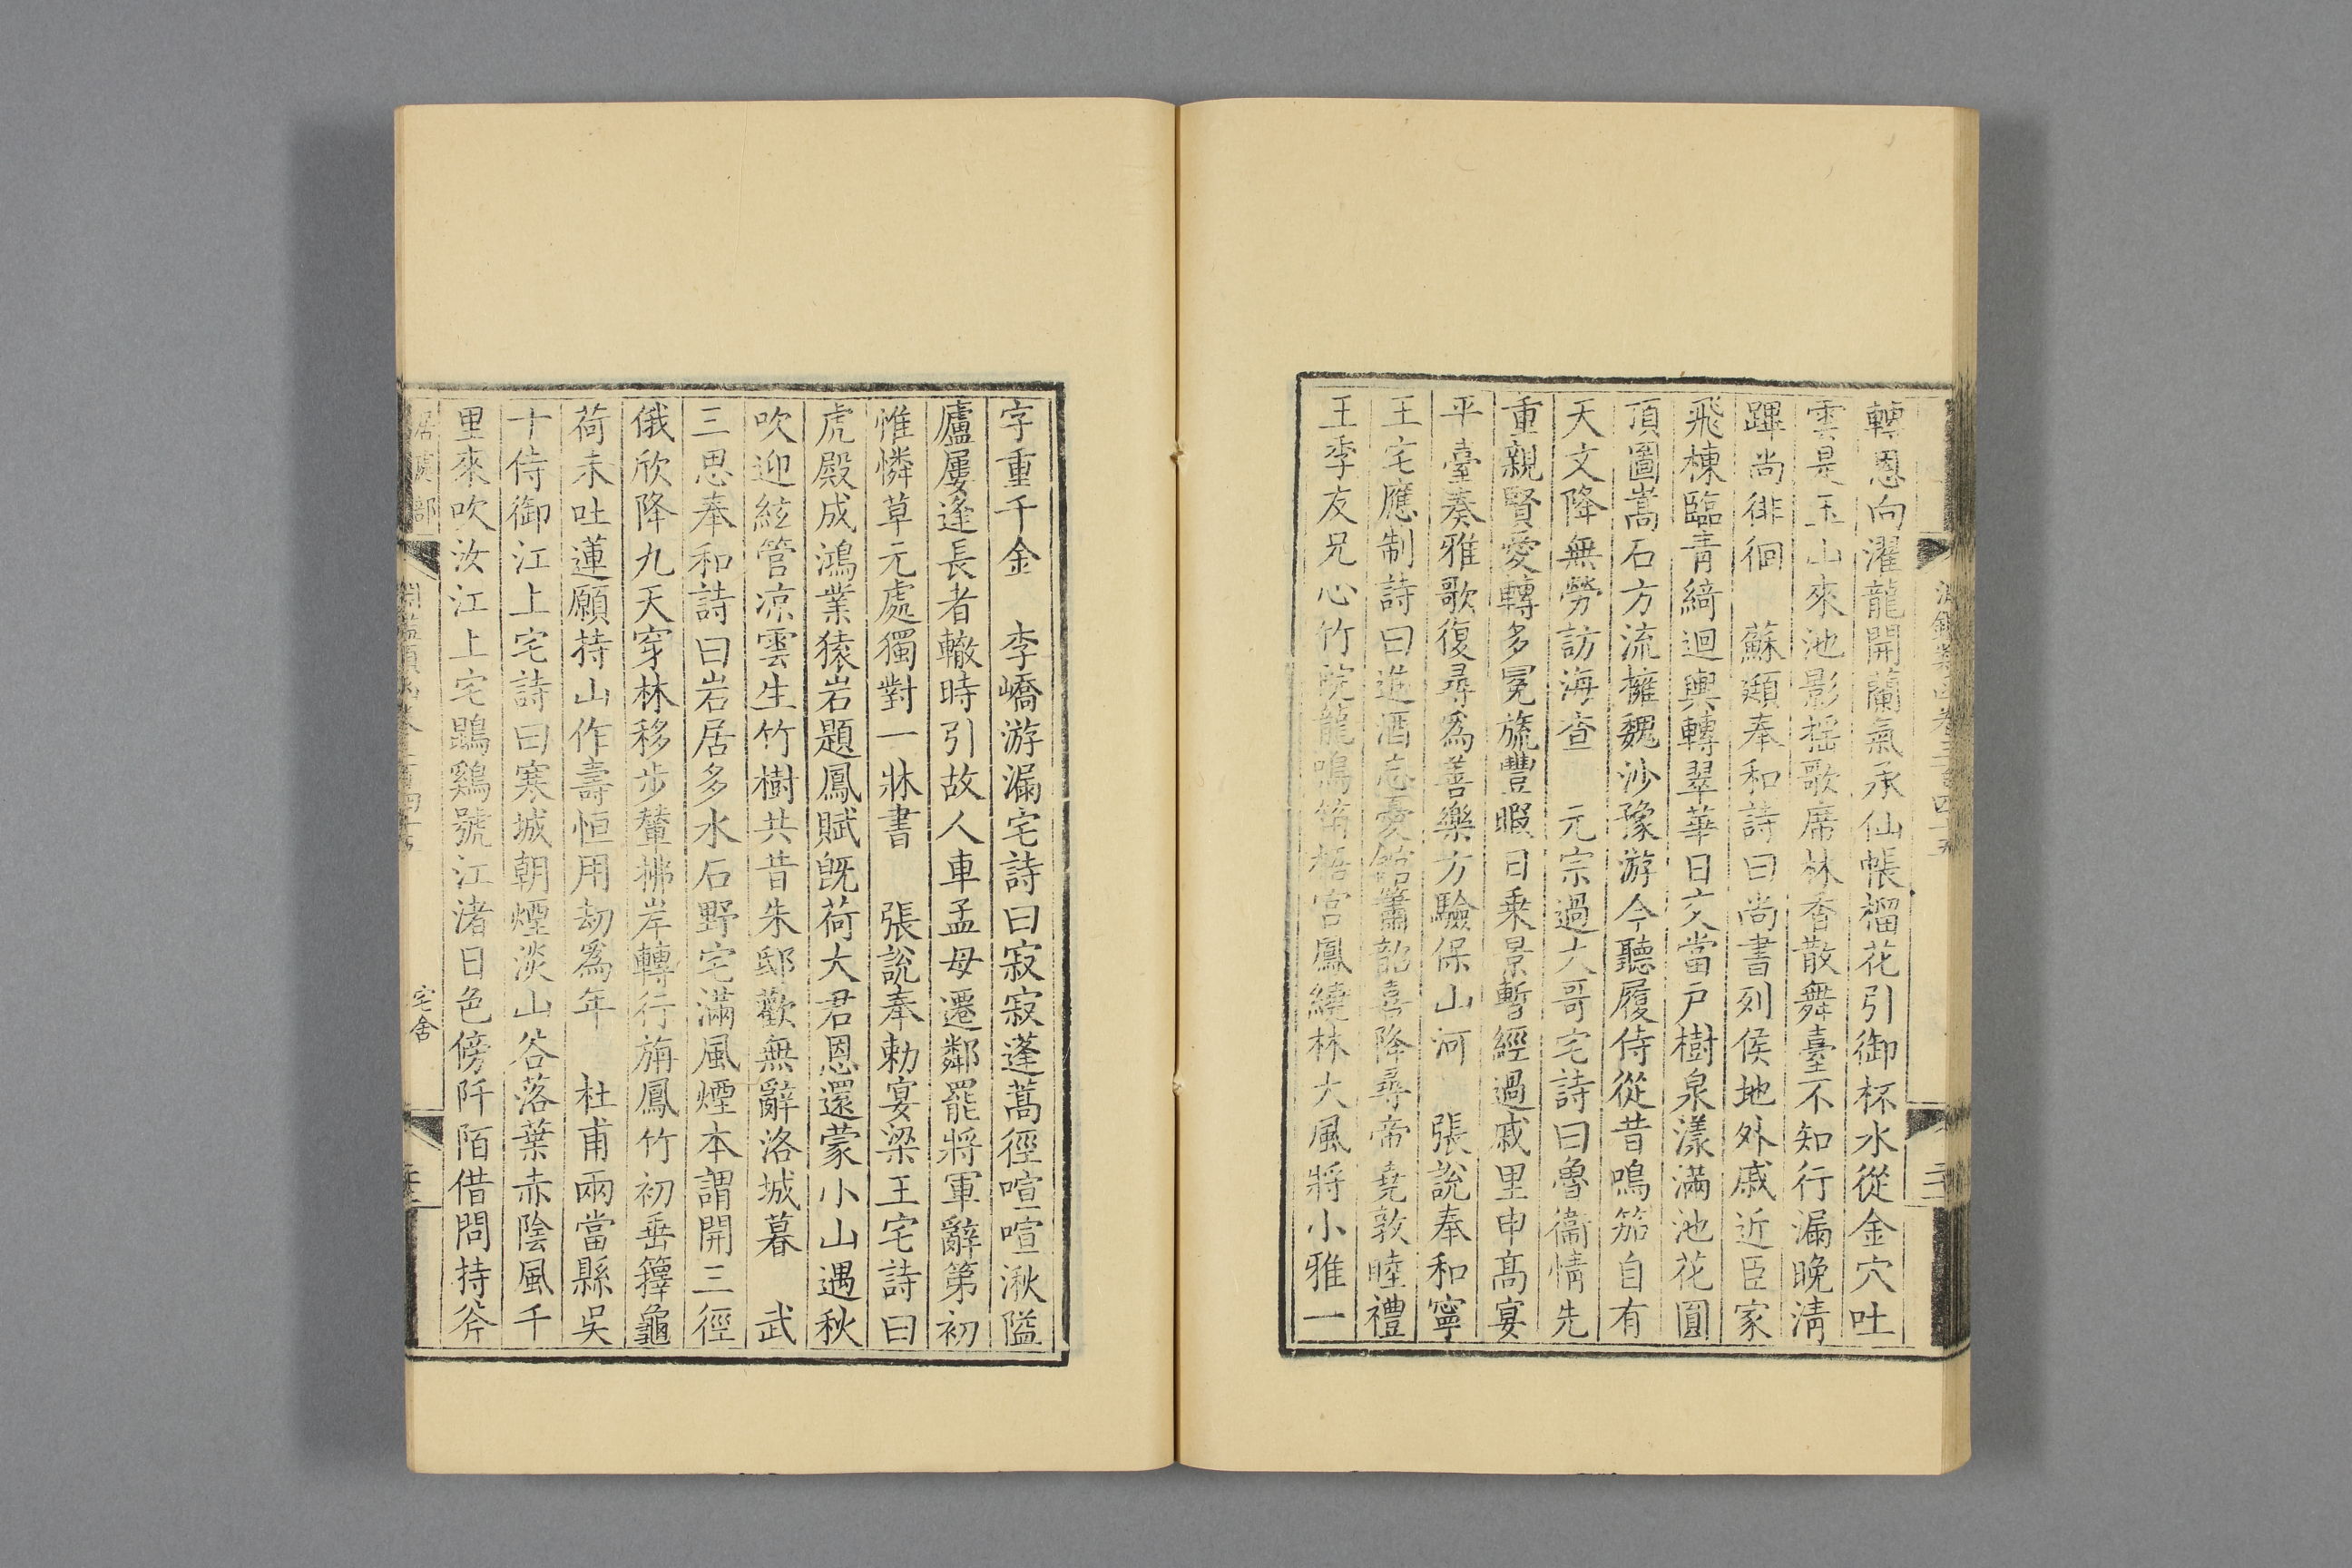 轉恩向濯龍開蘭氣承仙帳榴花引御杯水從金穴吐
雲是玉山來池影搖歌席林香散舞臺不知行漏晚淸
蹕尚徘徊　蘇頲奉和詩曰尚書列侯地外戚近臣家
飛棟臨青綺迴輿轉翠華日交當戸樹泉漾滿池花圓
頂圖嵩石方流擁魏沙豫游今聽履侍從昔鳴笳自有
天文降無勞訪海查　元宗過大哥宅詩曰魯衞情先
重親賢愛轉多冕旒豐暇日乗景暫經過戚里申髙宴
平臺奏雅歌復尋爲善樂方驗保山河　張說奉和寧
王宅應制詩曰進酒忘憂舘簫韶喜降尋帝堯敦睦禮
王季友兄心竹院龍鳴笛梧宮鳳繞林大風將小雅一
字重千金　李嶠游漏宅詩曰寂寂蓬蒿徑喧喧湫隘
廬屢逢長者轍時引故人車孟母遷鄰罷將軍辭第初
惟憐草元處獨對一牀書　張說奉勅宴梁王宅詩曰
虎殿成鴻業猿岩題鳳賦旣荷大君恩還蒙小山遇秋
吹迎絃管凉雲生竹樹共昔朱邸歡無辭洛城暮　武
三思奉和詩曰岩居多水石野宅滿風煙本謂開三徑
俄欣降九天穿林移步輦拂岸轉行旃鳳竹初垂籜龜
荷未吐蓮願持山作壽恒用劫爲年　杜甫兩當縣吳
十侍御江上宅詩曰寒城朝煙淡山谷落葉赤陰風千
里來吹汝江上宅鵾鷄號江渚日色傍阡陌借問持斧
居處部
淵鑑類函卷三百四十五
宅舍